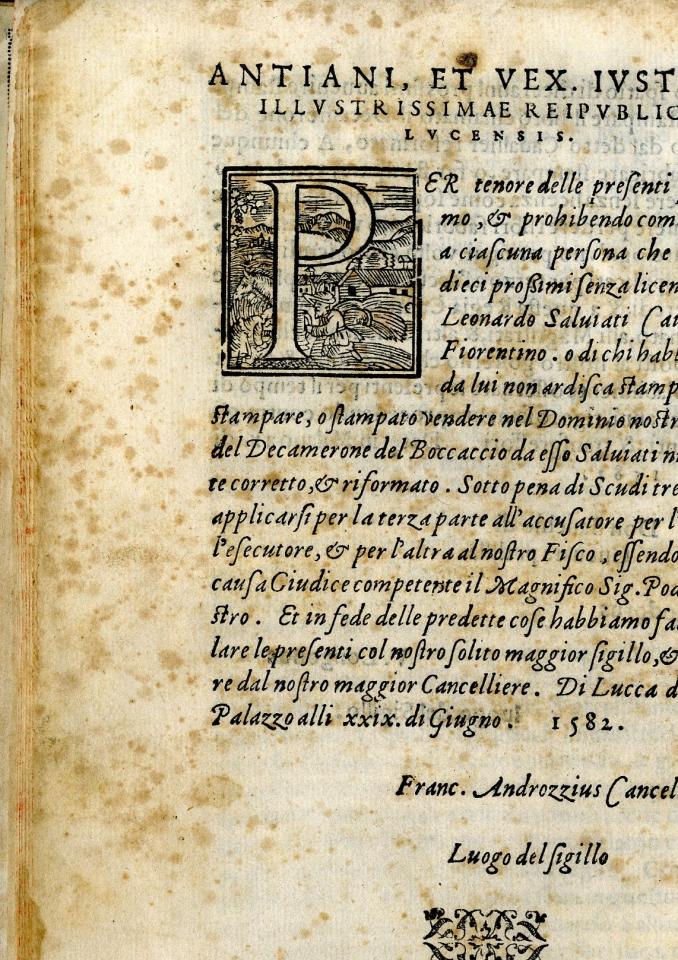 ANTIANI, ET VEX. IVST
ILLVSTRISSIMAE REIPVBLIC
LVCENSIS.
PER tenore delle preſenti
mo, & prohibendo com
a ciaſcuna perſona che
dieci proßimi ſenza licen
Leonardo Saluiati Cau
Fiorentino. o di chi habb
da lui non ardiſca ſtamp
ſtampare, o ſtampato vendere nel Dominio noſtr
del Decamerone del Boccaccio da eſſo Saluiati n
te corretto, & riformato. Sotto pena di Scudi tre
applicarſi per la terza parte all'accuſatore per l'
l'eſecutore, & per l'altra al noſtro Fiſco, eſſendo
cauſa Giudice competente il Magnifico Sig. Pod
ſtro. Et in fede delle predette coſe habbiamo fa
lare le preſenti col noſtro ſolito maggior ſigillo, &
re dal noſtro maggior Cancelliere. Di Lucca d
Palazzo alli xxix. di Giugno. 1582.
Franc. Androzzius Cancel
Luogo del ſigillo